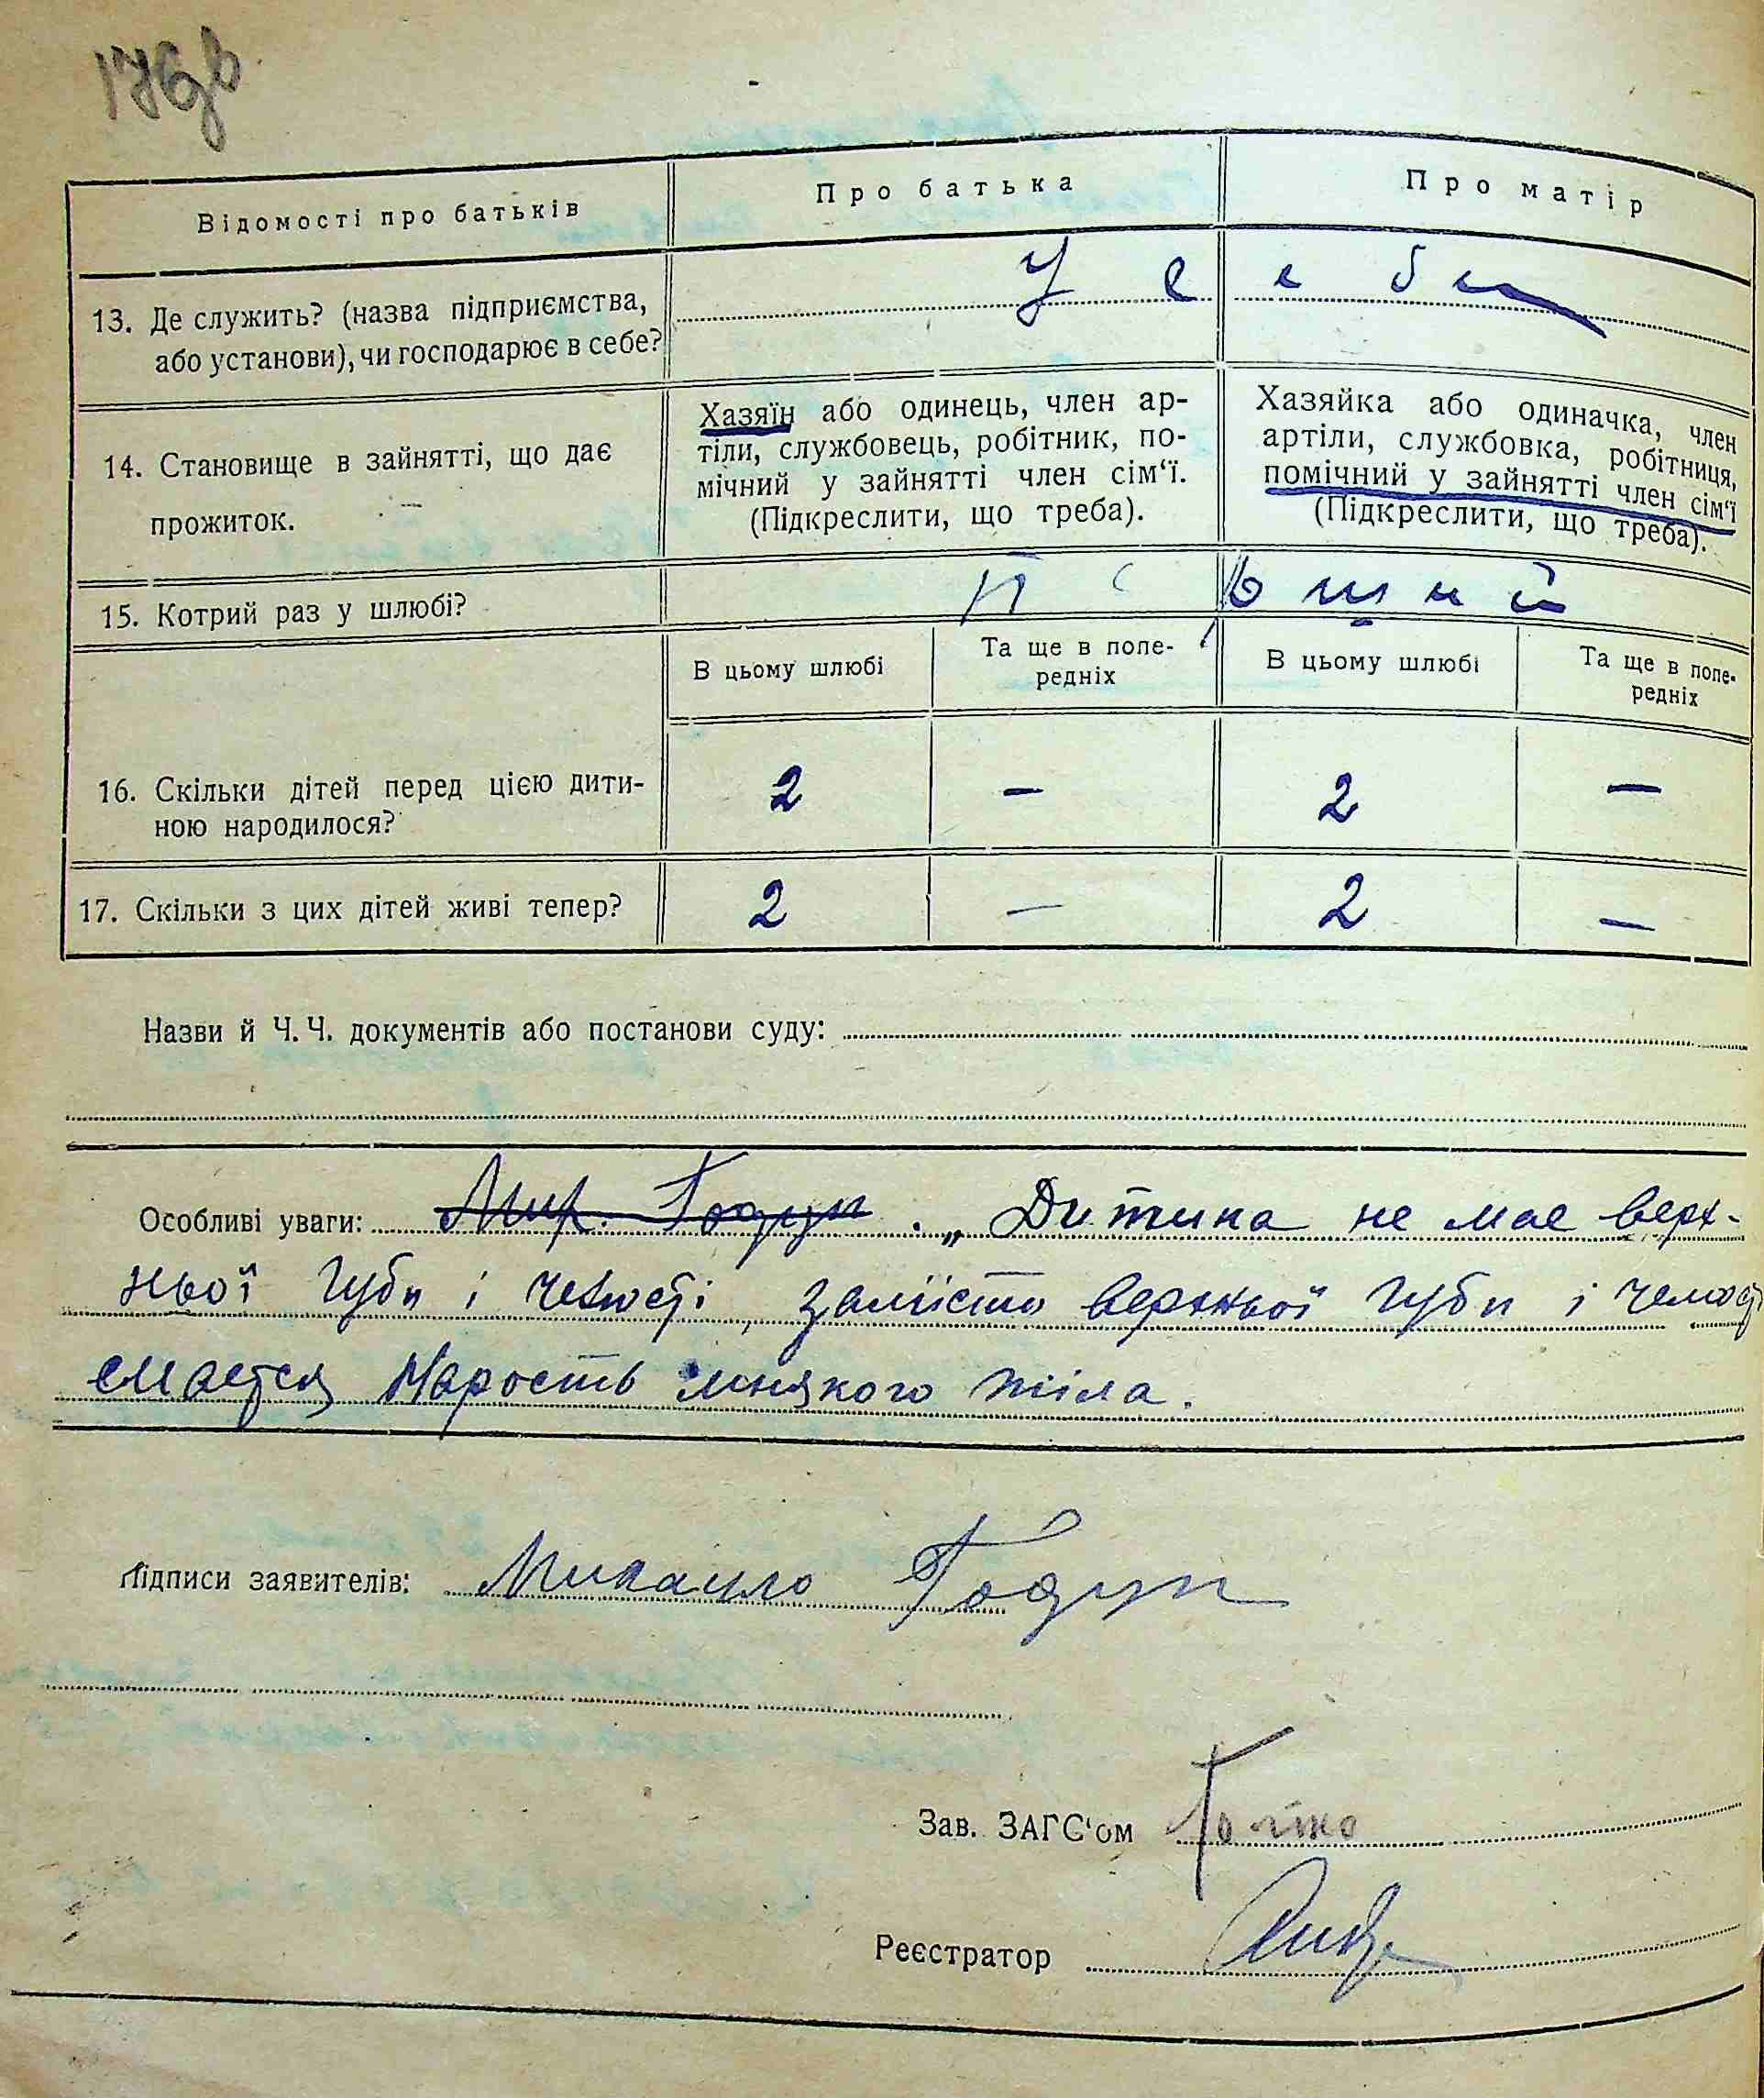 Відомості про батьків Про батька Про матір
У себе
13. Де служить? (назва підприємства,
або установи), чи господарює в себе?
14. Становище в зайнятті, що дає
прожиток.
Хазяїн або одинець, член ар-
тіли, службовець, робітник, по-
мічний у зайнятті член сім‘ї.
(Підкреслити, що треба).
Хазяйка або одиначка, член
артіли, службовка, робітниця,
помічний у зайнятті член сім‘ї
(Підкреслити, що треба).
15. Котрий раз у шлюбі?
В цьому шлюбі
Та ще в попе-
редніх
В цьому шлюбі
Та ще в попе-
редніх
16. Скільки дітей перед цією дити-
ною народилося?
2 — 2 —
17. Скільки з цих дітей живі тепер? 2 — 2 —
Назви й Ч. Ч. документів або постанови суду:
Особливі уваги: Мих. Годун. „Дитина не має верх-
ньої губи і , замість верхньої губи і
мается нарость мнякого тіла.
Підписи заявителів: Михайло Годун
Зав. ЗАГС‘ом
Реєстратор